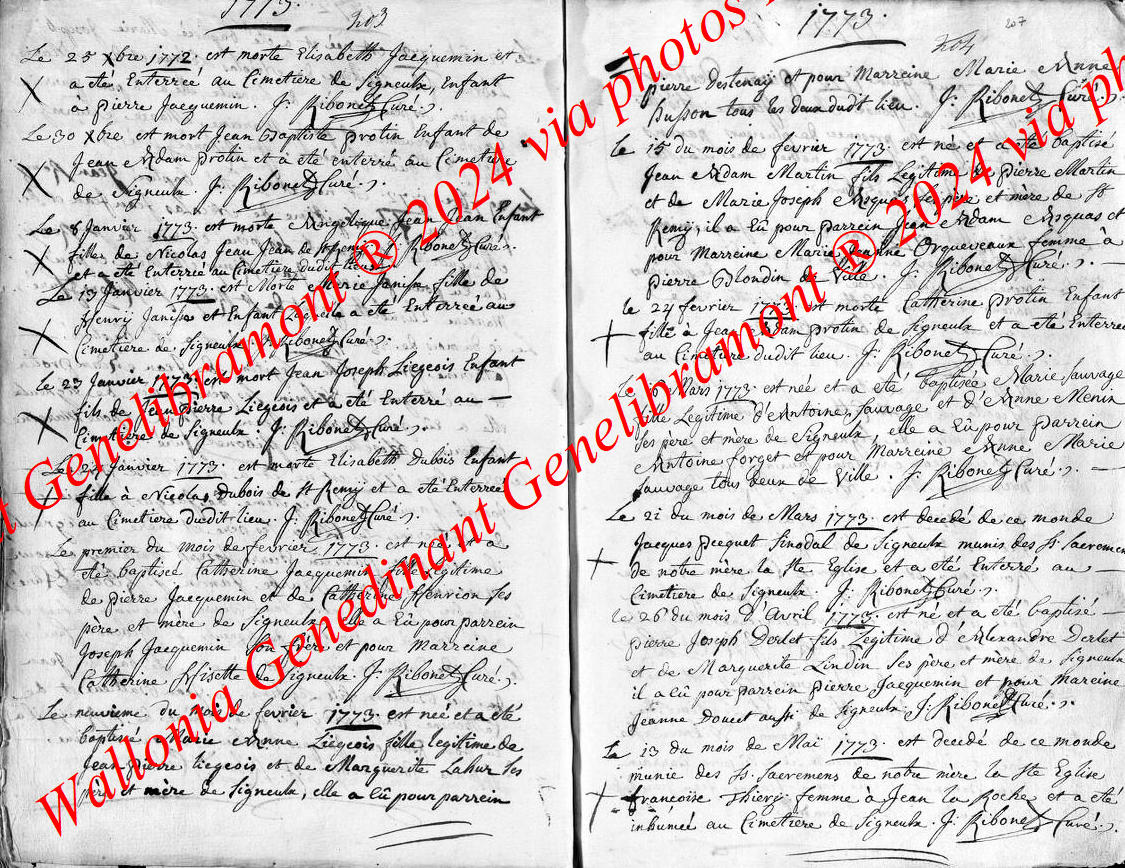 1773.
203
Le 25 Xbre 1772 est morte Elisabeth Jacquemin et
a eté Enterreé au Cimetiere de Signeulx Enfant
a pierre Jacquemin. J: Ribonet Curé.
Le 30 Xbre est mort Jean Baptiste protin Enfant de
Jean Adam protin et a eté enterré au Cimetiere
de Signeulx. J. Ribonet Curé.
Le 8 Janvier 1773. est morte Angelique Jean Jean Enfant
fille de Nicolas Jean Jean de St Remy J: Ribonet Curé.
et a eté Enterreé au Cimetiere dudit lieu
Le 13 Janvier 1773. est Morte Marie fille de
Henry et Enfant a eté Enterreé au
Cimetiere de Signeulx. J: Ribonet Curé.
Le 23 Janvier 1773. est mort Jean Joseph Liegeois Enfant
fils de Jean pierre Liegeois et a eté Enterré au —
Cimetiere de Signeulx. J: Ribonet Curé.
Le Janvier 1773. est morte Elisabeth Dubois Enfant
fille à Nicolas Dubois de St Remy et a eté Enterreé
au Cimetiere dudit lieu. J. Ribonet Curé.
Le premier du mois de fevrier 1773. est neé et a
eté baptiseé Catherine Jacquemin fille legitime
de pierre Jacquemin et de Catherine Henrion ses
père et mère de Signeulx elle a eû pour parrein
Joseph Jacquemin son frère et pour Marreine
Catherine de Signeulx. J. Ribonet Curé.
Le neuvieme du mois de fevrier 1773. est neé et a eté
baptiseé Marie Anne Liegeois fille legitime de
Jean pierre liegeois et de Marguerite Lahur ses
père et mère de Signeulx, elle a eû pour parrein
1773.
207
204
pierre Destenay et pour Marreine Marie Anne
husson tous les deux dudit lieu. J. Ribonet Curé.
Le 15 du mois de fevrier 1773. est né et a eté baptisé
Jean Adam Martin fils Legitime de pierre Martin
et de Marie Joseph Asquas ses père et mère de St
Remy, il a eû pour parrein Jean Adam Asquas et
pour Marreine Marie Jeanne Orqueveaux femme à
pierre Blondin de Ville. J. Ribonet Curé. —
le 24 fevrier 1773. est morte Catherine protin Enfant
fille à Jean Adam protin de Signeulx et a eté Enterreé
au Cimetiere dudit lieu. J: Ribonet Curé.
Le Mars 1773. est neé et a eté baptiseé Marie Sauvage
fille Legitime d'Antoine Sauvage et d'Anne Menin
ses pere et mère de Signeulx, elle a eû pour parrein
Antoine forget et pour Marreine Anne Marie
Sauvage tous deux de Ville. J. Ribonet Curé. —
Le 21 du mois de Mars 1773. est decedé de ce monde
Jacques pecquet Sinodal de Signeulx munis des St. Sacremens
de notre mère la Ste Eglise et a eté Enterré au —
Cimetiere de Signeulx. J. Ribonet Curé.
le 26 du mois d'Avril 1773. est né et a eté baptisé —
pierre Joseph Derlet fils Legitime d'Alexandre Derlet
et de Marguerite Lindin ses père et mère de Signeulx
il a eû pour parrein pierre Jacquemin et pour Mareine
Jeanne Doucet aussi de Signeulx. J. Ribonet Curé.
Le 13 du mois de Mai 1773. est decedé de ce monde
munie des St. sacremens de notre mère la Ste Eglise
françoise Thiery femme à Jean la Roche et a eté
inhumeé au Cimetiere de Signeulx. J. Ribonet Curé.
Wallonia Genedinant Genelibramont ® 2024 via photos
Genelibramont ® 2024 via pho